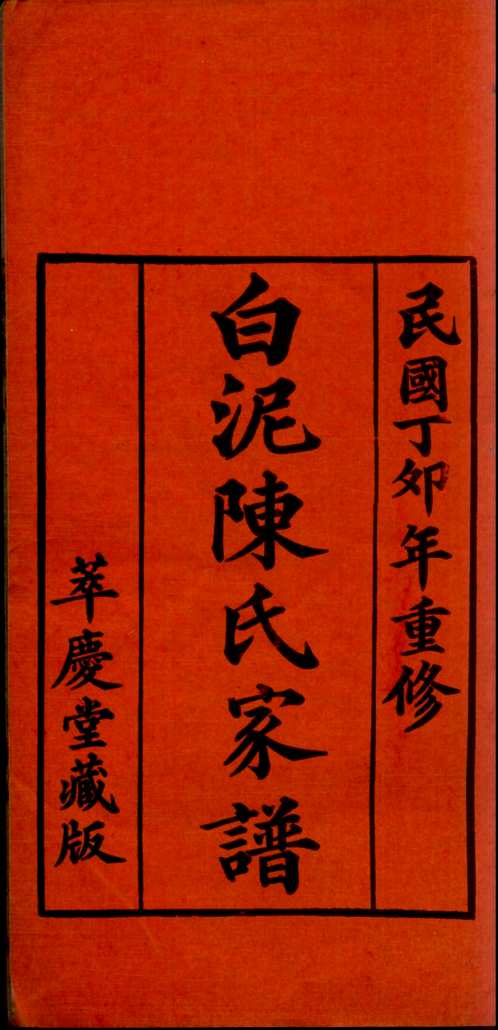 民國丁卯年重修
白泥陳氏家譜
萃慶堂藏版